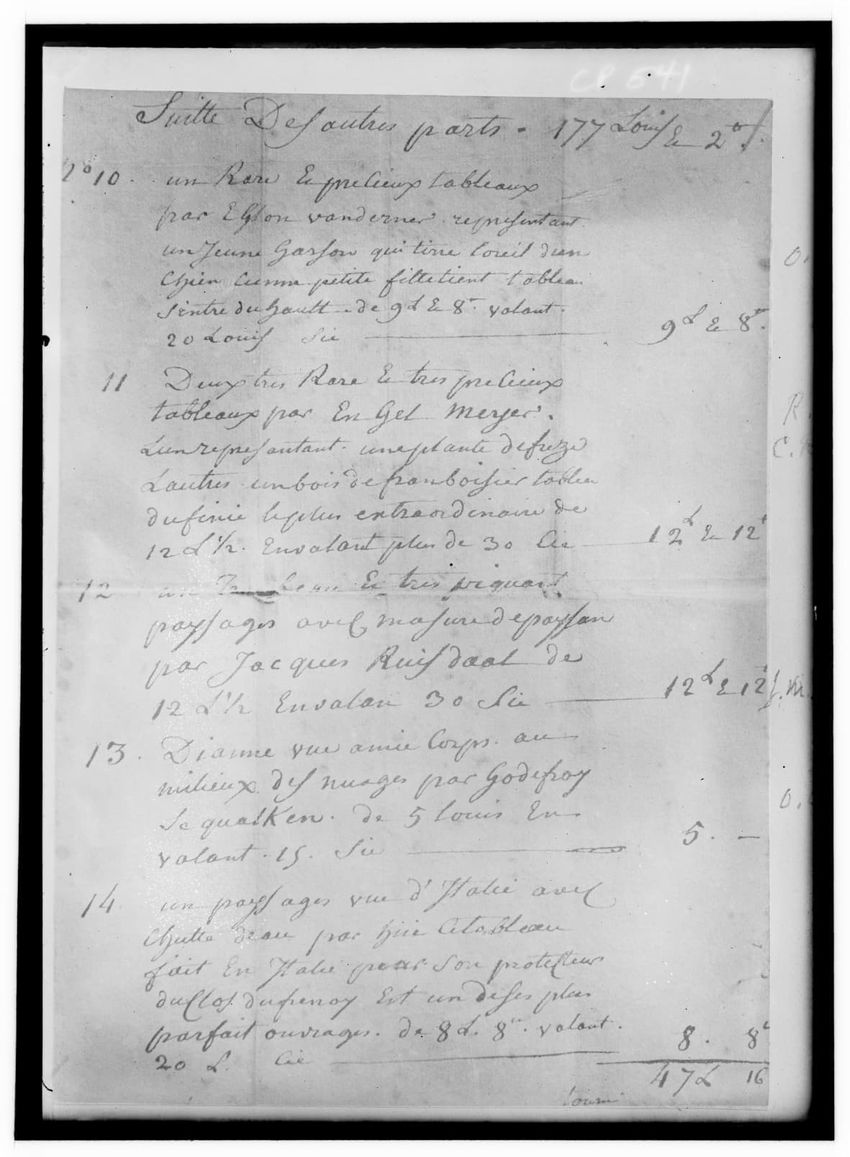 CP 541
Suitte Des autres parts. 177 Louis & 2
10. un Rare & precieux tableaux
par Eglon vanderner. representant
un Jeune Garson qui tire loreil dun
Chien
20 Louis Sie 9L & 8
11 Deux tres Rare & tres precieux
tableaux par En Gel Meyer.
Lun represantant. une plante defreze
Lautres un bois de framboisier tablea
du finie le plus extraordinaire de
12 L 1/2. En valant plus de 30 Cie 12L & 12
12 un & tres piquant
paysages avec masure de paysan
par Jacques Ruisdaal de
12 L 1/2 En valan 30 Sie 12L & 12
13. Dianne vue amie Corps. au
milieux des nuages par Godefroy
Sequalken. de 5 louis En
valant. 15. Sie 5. —
14 un paysages vue d'Italie avec
Chutte deau par
fait En Italie pour Son protecteur
duClos dufrenoy Est un de ses plus
parfait ouvrages. de 8 L. 8 valant.
20 L. Cie 8. 8
47L 16